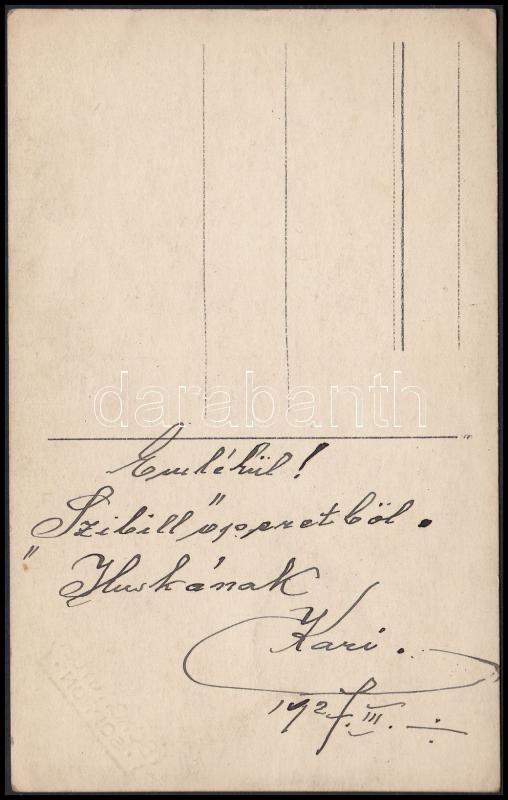 darabanth
Emlékül!
„Szibill" operetből.
Iluskának
Kari.
1927. III.